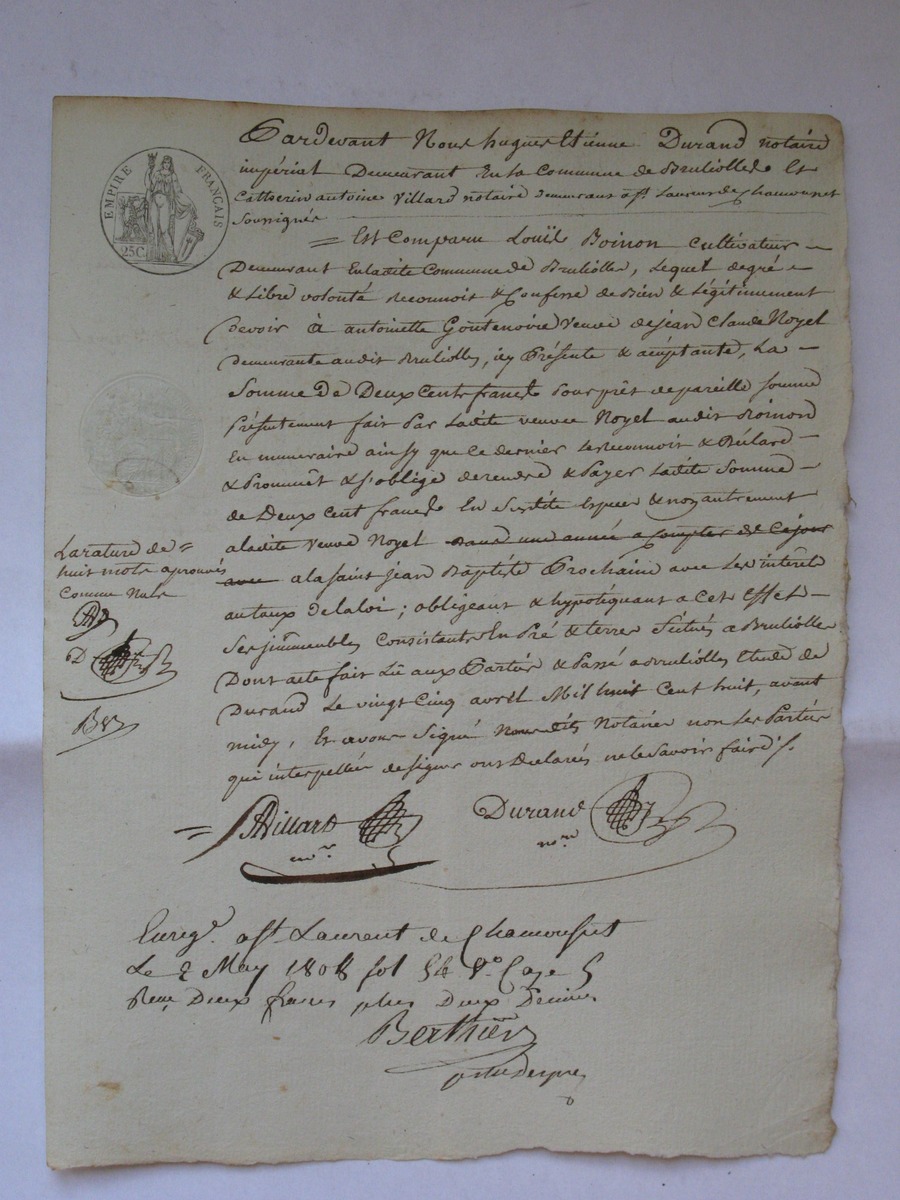 EMPIRE FRANÇAIS
25C.
Pardevant Nous hugues Etienne Durand notaire
impérial Demeurant En la Commune de Brulliolles Et
Catherin antoine Villard notaire demeurant a St. Laurent de Chamousset
Soussignés
= Est Comparu Louïs Boinon Cultivateur –
Demeurant En ladite Commune de Brulioller, Lequel de gré –
& Libre volonté reconnoit & Confesse de Bien & Légitimement
devoir à antoinette Goutenoire Veuve de jean Claude Noyel
demeurante audit Brulliolles, icy Présente & acceptante, La –
Somme de Deux Cents francs Pour prêt de pareille somme
Présentement fait Par Ladite veuve Noyel audit Boinond
En numeraire ainsy que ce dernier Le reconnoit & Déclare –
& Prommêt & s'oblige de rendre & Payer Ladite Somme –
de Deux Cent francs En Susdite Espece & non autrement
a ladite Veuve Noyel dans une année a compter de Ce jour
avec a la saint jean Baptiste Prochaine avec Les interêts
au taux de la loi ; obligeant & hypotéquant a Cet effet –
Ses immeubles Consistants En Pré & terres Situés a Brulioller
Dont acte fait Lû aux Parties & Passé a Brulliolles Etude de
Durand Le vingt Cinq avril Mil huit Cent huit, avant
midy, Et avons Signé Nous dits Notaires non Les Parties
qui interpellées de signer ont Déclarés ne le Savoir faire /.
La rature de =
huit mots aprouvés
Comme Nuls
D
Ber
= Villard
nore
Durand
nore
Enregé. a St. Laurent de Chamousset
Le 2 May 1808 fol 54 Vo. Case 5
Reçu Deux francs plus Deux Decimes
Berthier